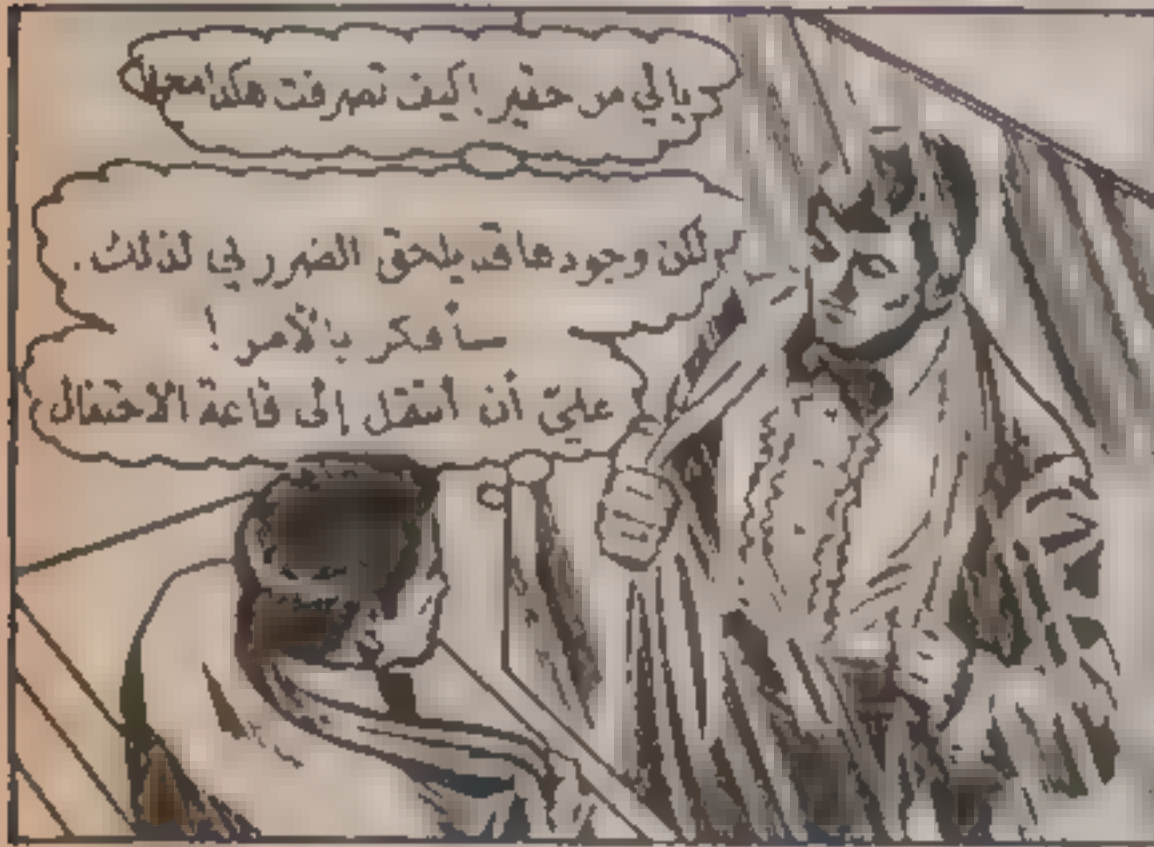 يالي من حقير! كيف تصرفت هكذا معها
لكن وجودها قد يلحق الضرر بي لذلك.
سأفكر بالأمر!
عليّ أن أنتقل إلى قاعة الاحتفال